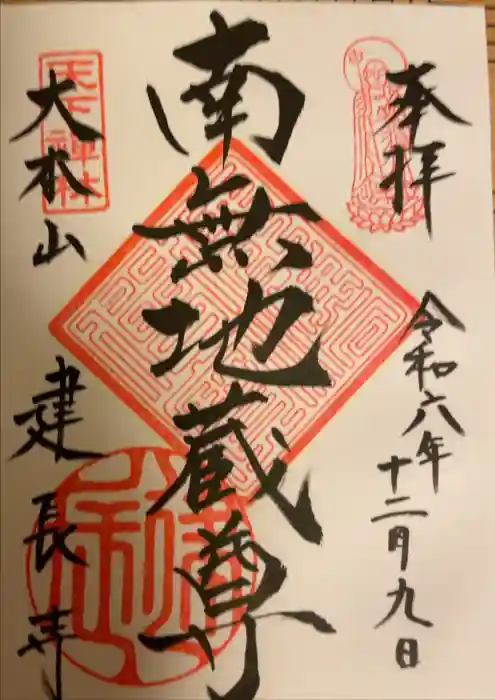 奉拝
令和六年
十二月九日
南無地蔵尊
天下禅林
大本山
建長寺